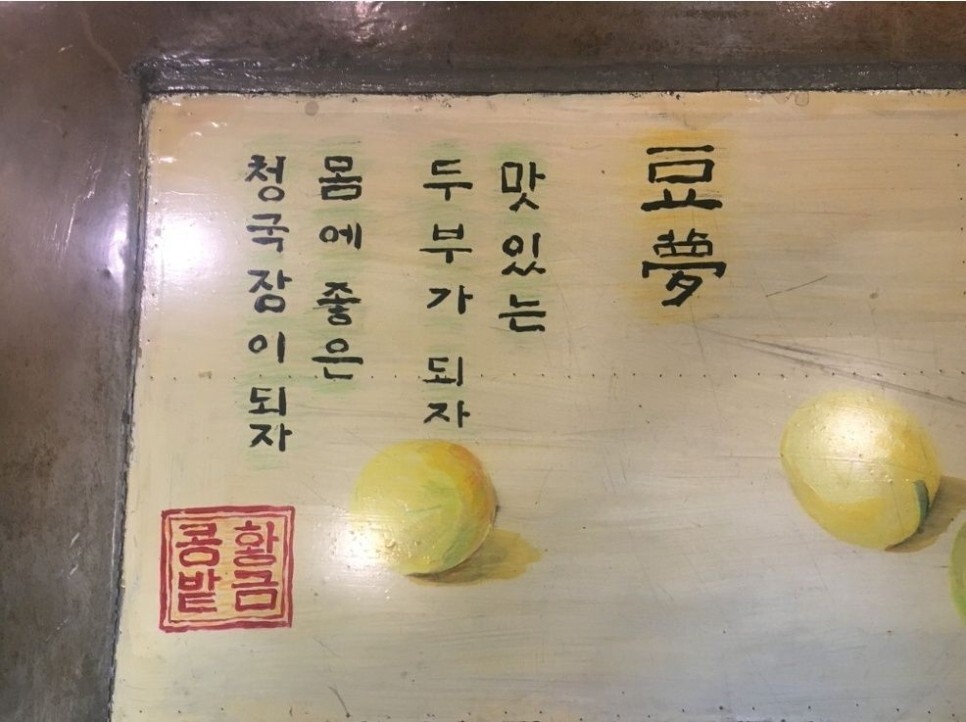 豆夢
맛있는
두부가 되자
몸에 좋은
청국장이 되자
황금
콩밭